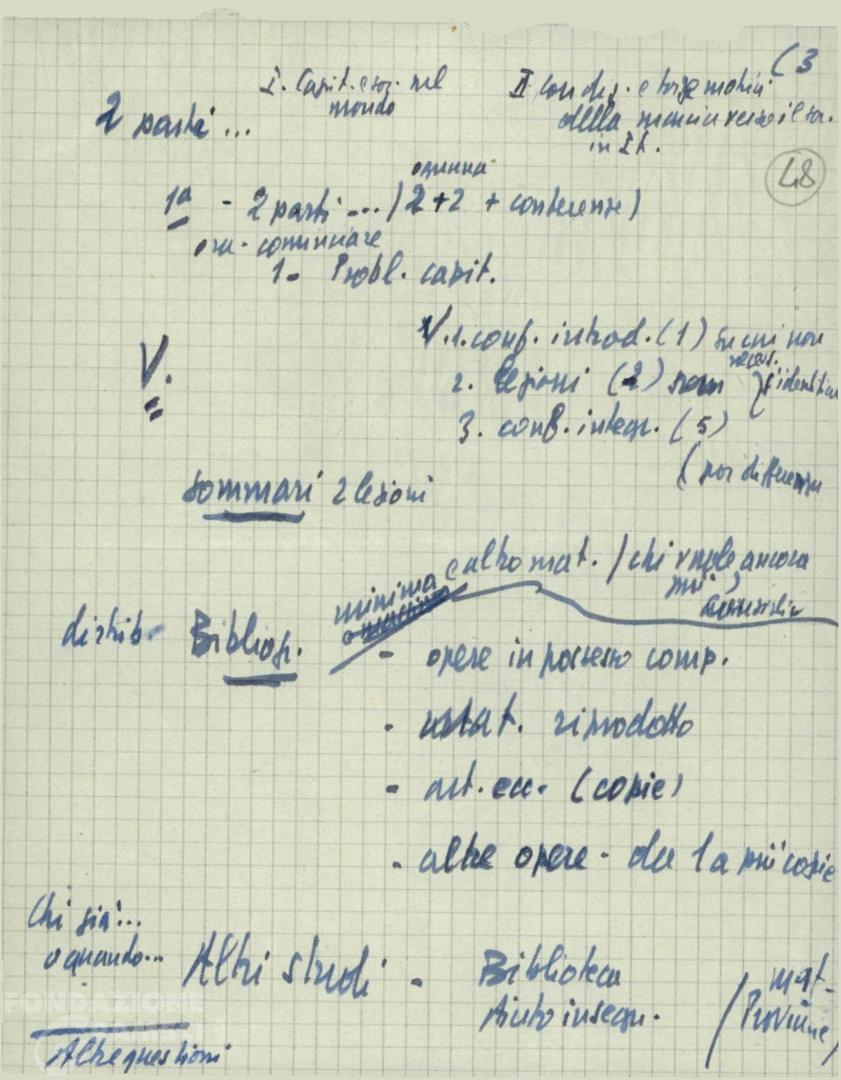 (3
I. Capit. e soc. nel mondo
II cond. e forze motrici
della marcia verso il soc.
in It.
2 parti ...
48
ognuna
1ª - 2 parti ... (2+2 + conferenze)
ora - cominciare
1 - Probl. capit.
V. 1. conf. introd. (1) su cui non
V.
2. lezioni (2)
3. conf. integr. (5)
(poi differenze
sommari 2 lezioni
e altro mat. (chi vuole ancora
più)
minima
distrib. Bibliogr.
- opere in possesso comp.
- mat. riprodotto
- art. ecc. (copie)
- altre opere - da 1 a più copie
Chi già ...
o quando...
Altri studi - Biblioteca
Aiuto insegn.
mat.
Altre questioni
FONDAZIONE